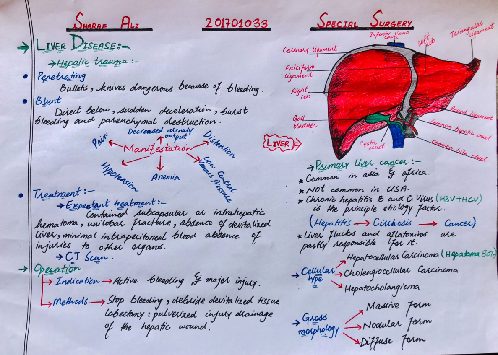 SHARAF ALI 201701038 SPECIAL SURGERY
LIVER DISEASE:-
Hepatic trauma:-
Penetrating
Bullets, knives dangerous because of bleeding.
Blunt
Direct below, sudden deceleration, burst
bleeding and parenchymal destruction.
Decreased urinary
output
Pain
Distention
Manifestation
Hypotension
Anemia
Low Central
Venous Pressure
Treatment:-
Expectant treatment:-
Contained subcapsular or intrahepatic
hematoma, unilobar fracture, absence of devitalized
liver, minimal intraperitoneal blood absence of
injuries to other organs.
CT Scan.
Operation
Indication Active bleeding & major injury.
Methods Stop bleeding, debride devitalized tissue
lobectomy: pulverized injury drainage
of the hepatic wound.
Inferior vena
cava
Left
lob
Triangular
ligament
Coronary ligament
Falciform
ligament
Right
Gall
bladder
Cystic
duct
Round ligament
Common hepatic duct
Common bile duct
LIVER
Primary liver cancer:-
Common in asia & africa.
NOT common in USA.
Chronic hepatitis B and C virus (HBV+HCV)
is the principle etiology factor.
(Hepatitis Cirrhosis Cancer)
Liver flucled and aflatoxins are
partly responsible for it.
Cellular
type
Hepatocellular Carcinoma (Hepatoma 80%)
Cholangiocellular Carcinoma
Hepatocholangioma
Gross
morphology
Massive form
Nodular form
Diffuse form